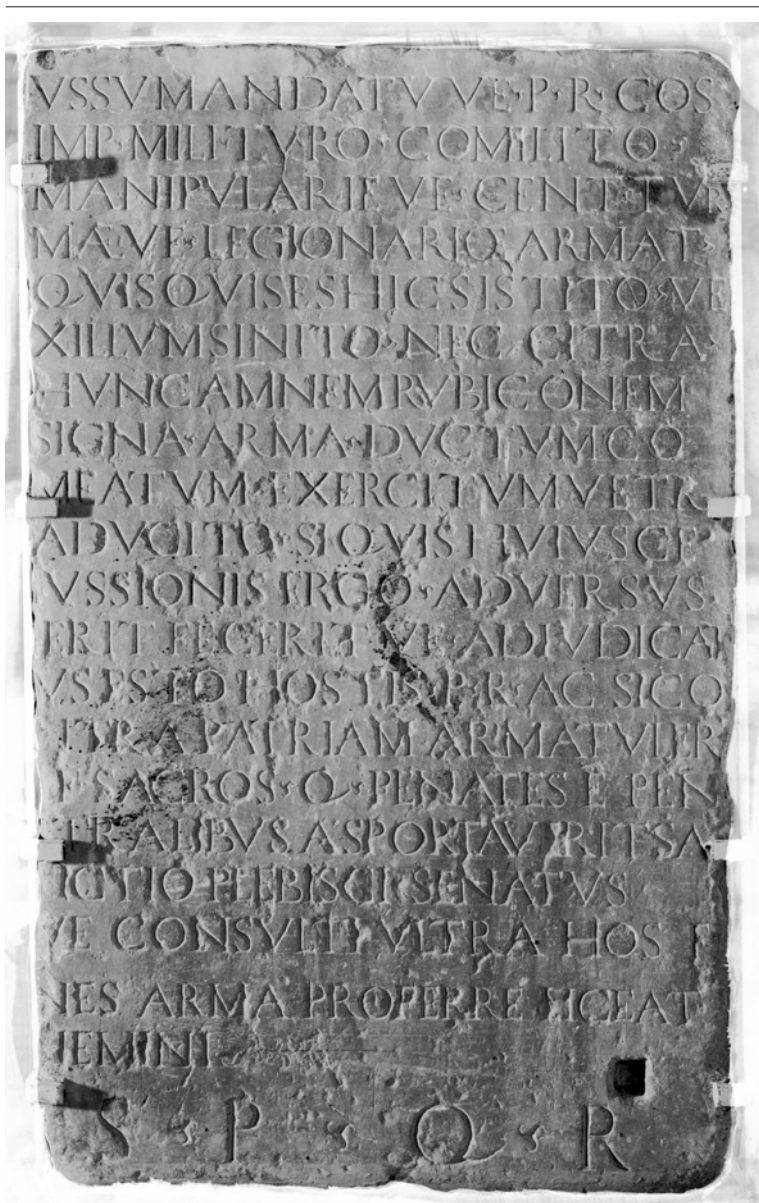 VSSVMANDATV VE·P·R·COS
IMP·MILI·TVRO·COMILITO
MANIPVLARIEVE·CENT·TVR
MÆ·VE·LEGIONARIQ ARMAT·
QVISQVISESHICSISTITO·VE
XILLVMSINITO·NEC CITRA·
HVNCAMNEMRVBICONEM
SIGNA·ARMA·DVCTVMCO
MEATVM·EXERCITVMVETR
ADVCITO·SIQVISHVIVSCE
VSSIONIS ERGO·ADVERSVS
ERIT FECERIT VE·ADIVDICA
VSESTOHOSTIS·P·R·AC SICO
TRAPATRIAM ARMATVLER
SACROS·Q·PENATES E PEN
TRALIBVS·ASPORTAVERITSA
CTIO·PLEBISCI·SENATVS
VE CONSVLTIVLTRA HOS F
NES ARMA PROFERRE LICEAT
NEMINI
S·P·Q·R